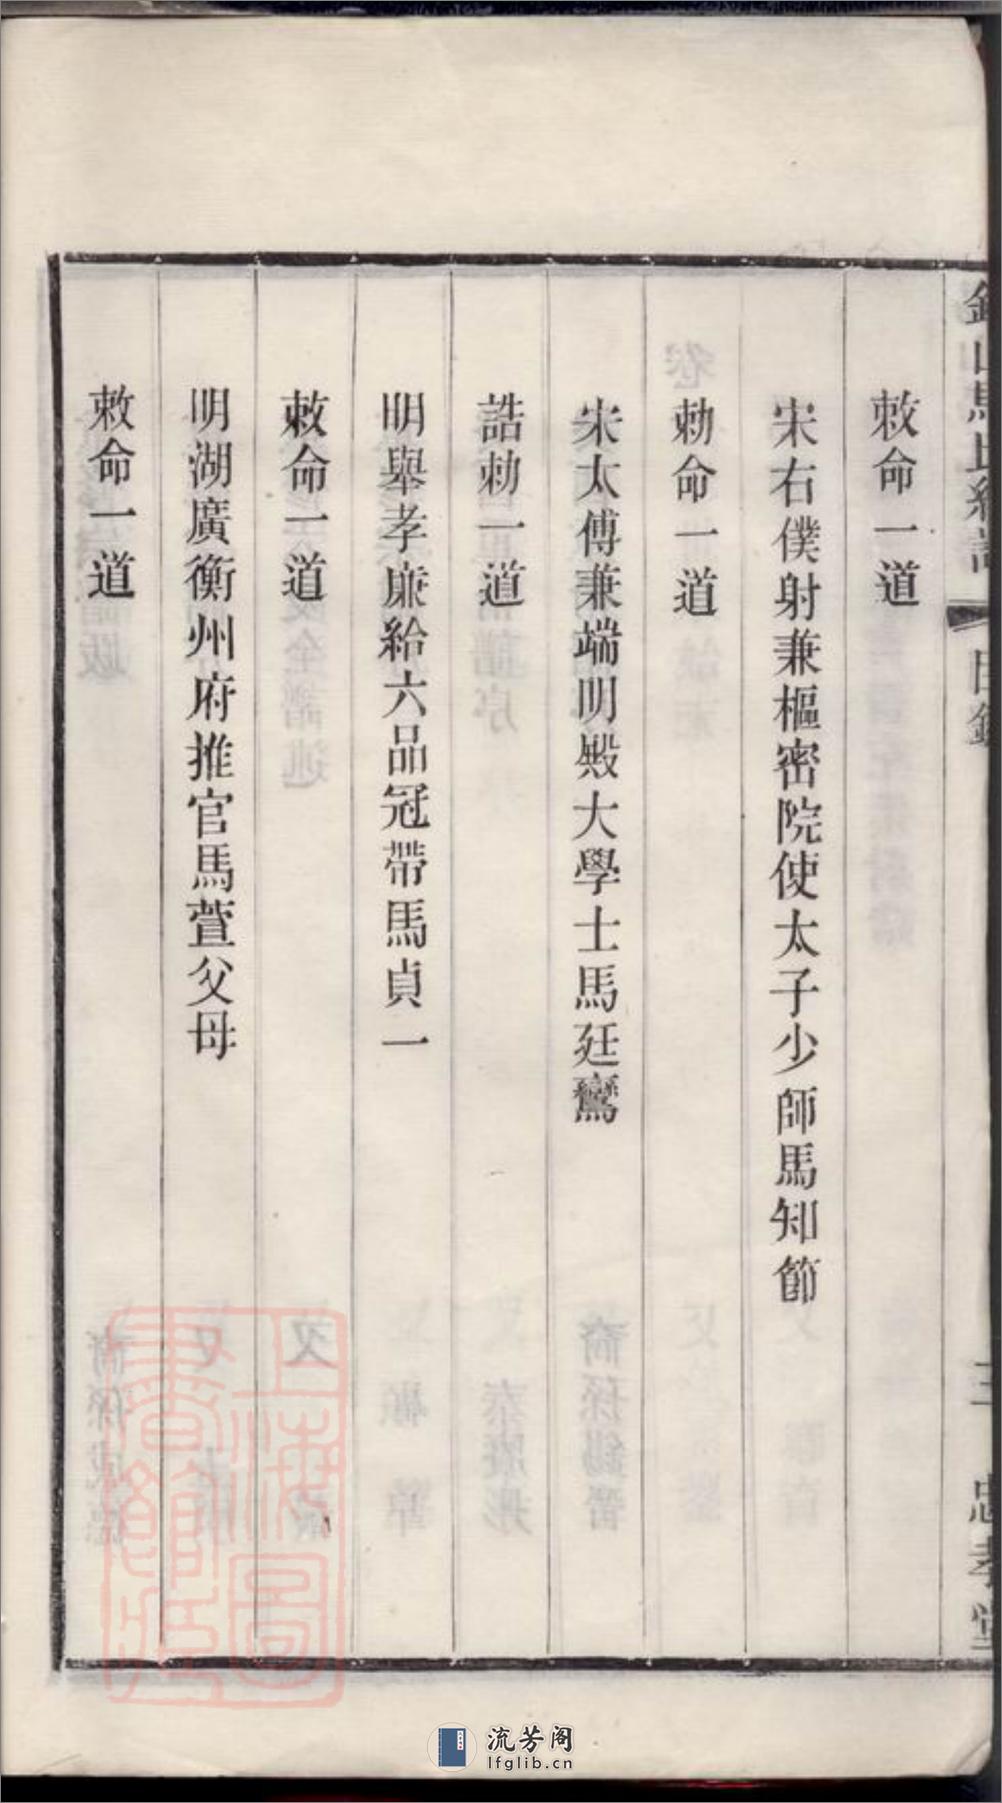 敕命一道
宋右僕射兼樞密院使太子少師馬知節
勅命一道
宋太傅兼端明殿大學士馬廷鸞
誥勅一道
明舉孝廉給六品冠帶馬貞一
敕命一道
明湖廣衡州府推官馬萱父母
敕命一道
目錄
三
忠孝堂
上海圖書館藏
流芳阁
lfglib.cn